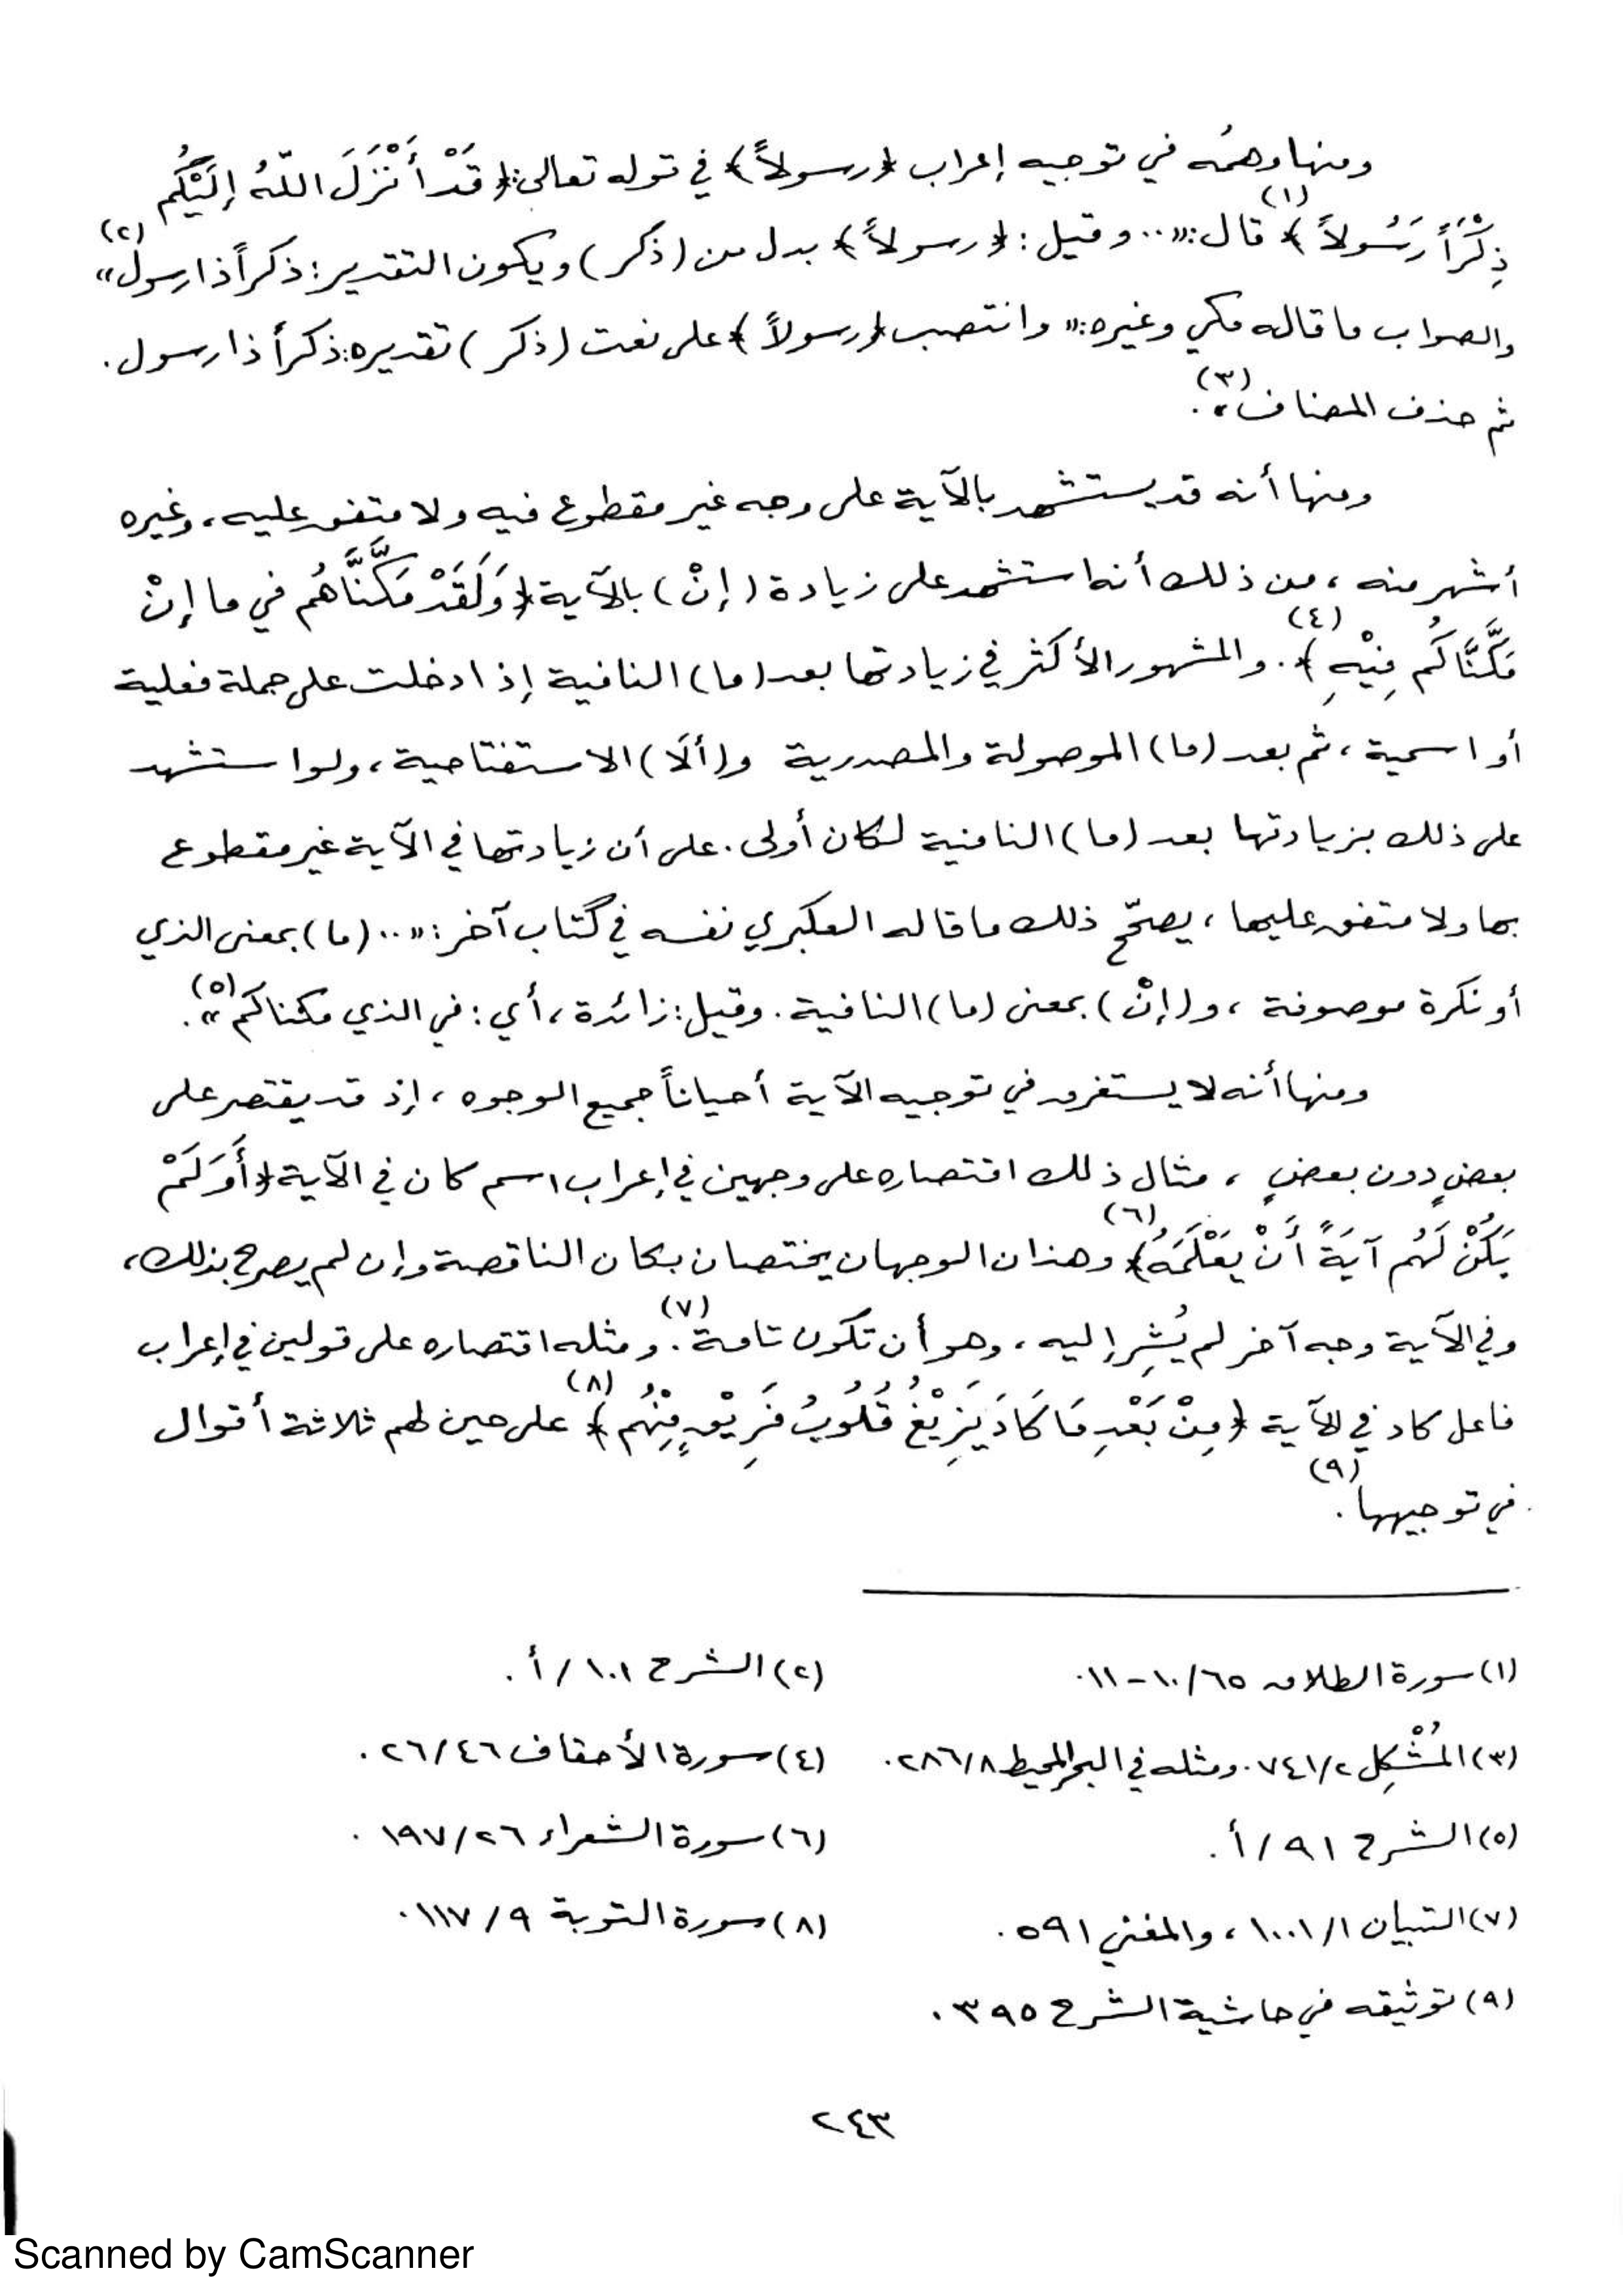 ومنها وهمُه في توجيه إعراب ﴿رسولاً﴾ في قوله تعالى: ﴿قَدْ أَنْزَلَ اللهُ إِلَيْكُم
ذِكْرَاً رَسُولاً﴾(١) قال: «٠٠ وقيل: ﴿رسولاً﴾ بدل من (ذكر) ويكون التقدير: ذكراً ذا رسول»(٢)
والصواب ما قاله مكي وغيره: «وانتصب ﴿رسولاً﴾ على نعت (ذكر) تقديره: ذكراً ذا رسول.
ثم حذف المضاف»(٣).
ومنها أنه قد يستشهد بالآية على وجه غير مقطوع فيه ولا متفق عليه، وغيره
أشهر منه، من ذلك أنه استشهد على زيادة (إنْ) بالآية ﴿وَلَقَدْ مَكَّنَّاهُم في ما إنْ
مَكَّنَّاكُم فِيْهِ﴾(٤). والمشهور الأكثر في زيادتها بعد (ما) النافية إذا دخلت على جملة فعلية
أو اسمية، ثم بعد (ما) الموصولة والمصدرية و(ألَا) الاستفتاحية، ولو استشهد
على ذلك بزيادتها بعد (ما) النافية لكان أولى. على أن زيادتها في الآية غير مقطوع
بها ولا متفق عليها، يصحّح ذلك ما قاله العكبري نفسه في كتاب آخر: «٠٠ (ما) بمعنى الذي
أو نكرة موصوفة، و(إنْ) بمعنى (ما) النافية. وقيل: زائدة، أي: في الذي مكناكم»(٥).
ومنها أنه لا يستغرق في توجيه الآية أحياناً جميع الوجوه، إذ قد يقتصر على
بعضٍ دون بعضٍ، مثال ذلك اقتصاره على وجهين في إعراب اسم كان في الآية ﴿أَوَلَمْ
يَكُنْ لَهُم آيَةً أَنْ يَعْلَمَهُ﴾(٦) وهذان الوجهان يختصان بكان الناقصة وإن لم يصرح بذلك،
وفي الآية وجه آخر لم يُشِر إليه، وهو أن تكون تامة(٧). ومثله اقتصاره على قولين في إعراب
فاعل كاد في الآية ﴿مِنْ بَعْدِ مَا كَادَ يَزِيْغُ قُلُوبُ فَرِيْقٍ مِنْهُم﴾(٨) على حين لهم ثلاثة أقوال
في توجيهها(٩).
(١) سورة الطلاق ٦٥/١٠-١١.
(٢) الشرح ١٠١/أ.
(٣) المُشْكِل ٢/٧٤١. ومثله في البحر المحيط ٨/٢٨٦.
(٤) سورة الأحقاف ٤٦/٢٦.
(٥) الشرح ٩١/أ.
(٦) سورة الشعراء ٢٦/١٩٧.
(٧) التبيان ١/١٠٠١، والمغني ٥٩١.
(٨) سورة التوبة ٩/١١٧.
(٩) توثيقه في حاشية الشرح ٣٩٥.
٢٤٣
Scanned by CamScanner